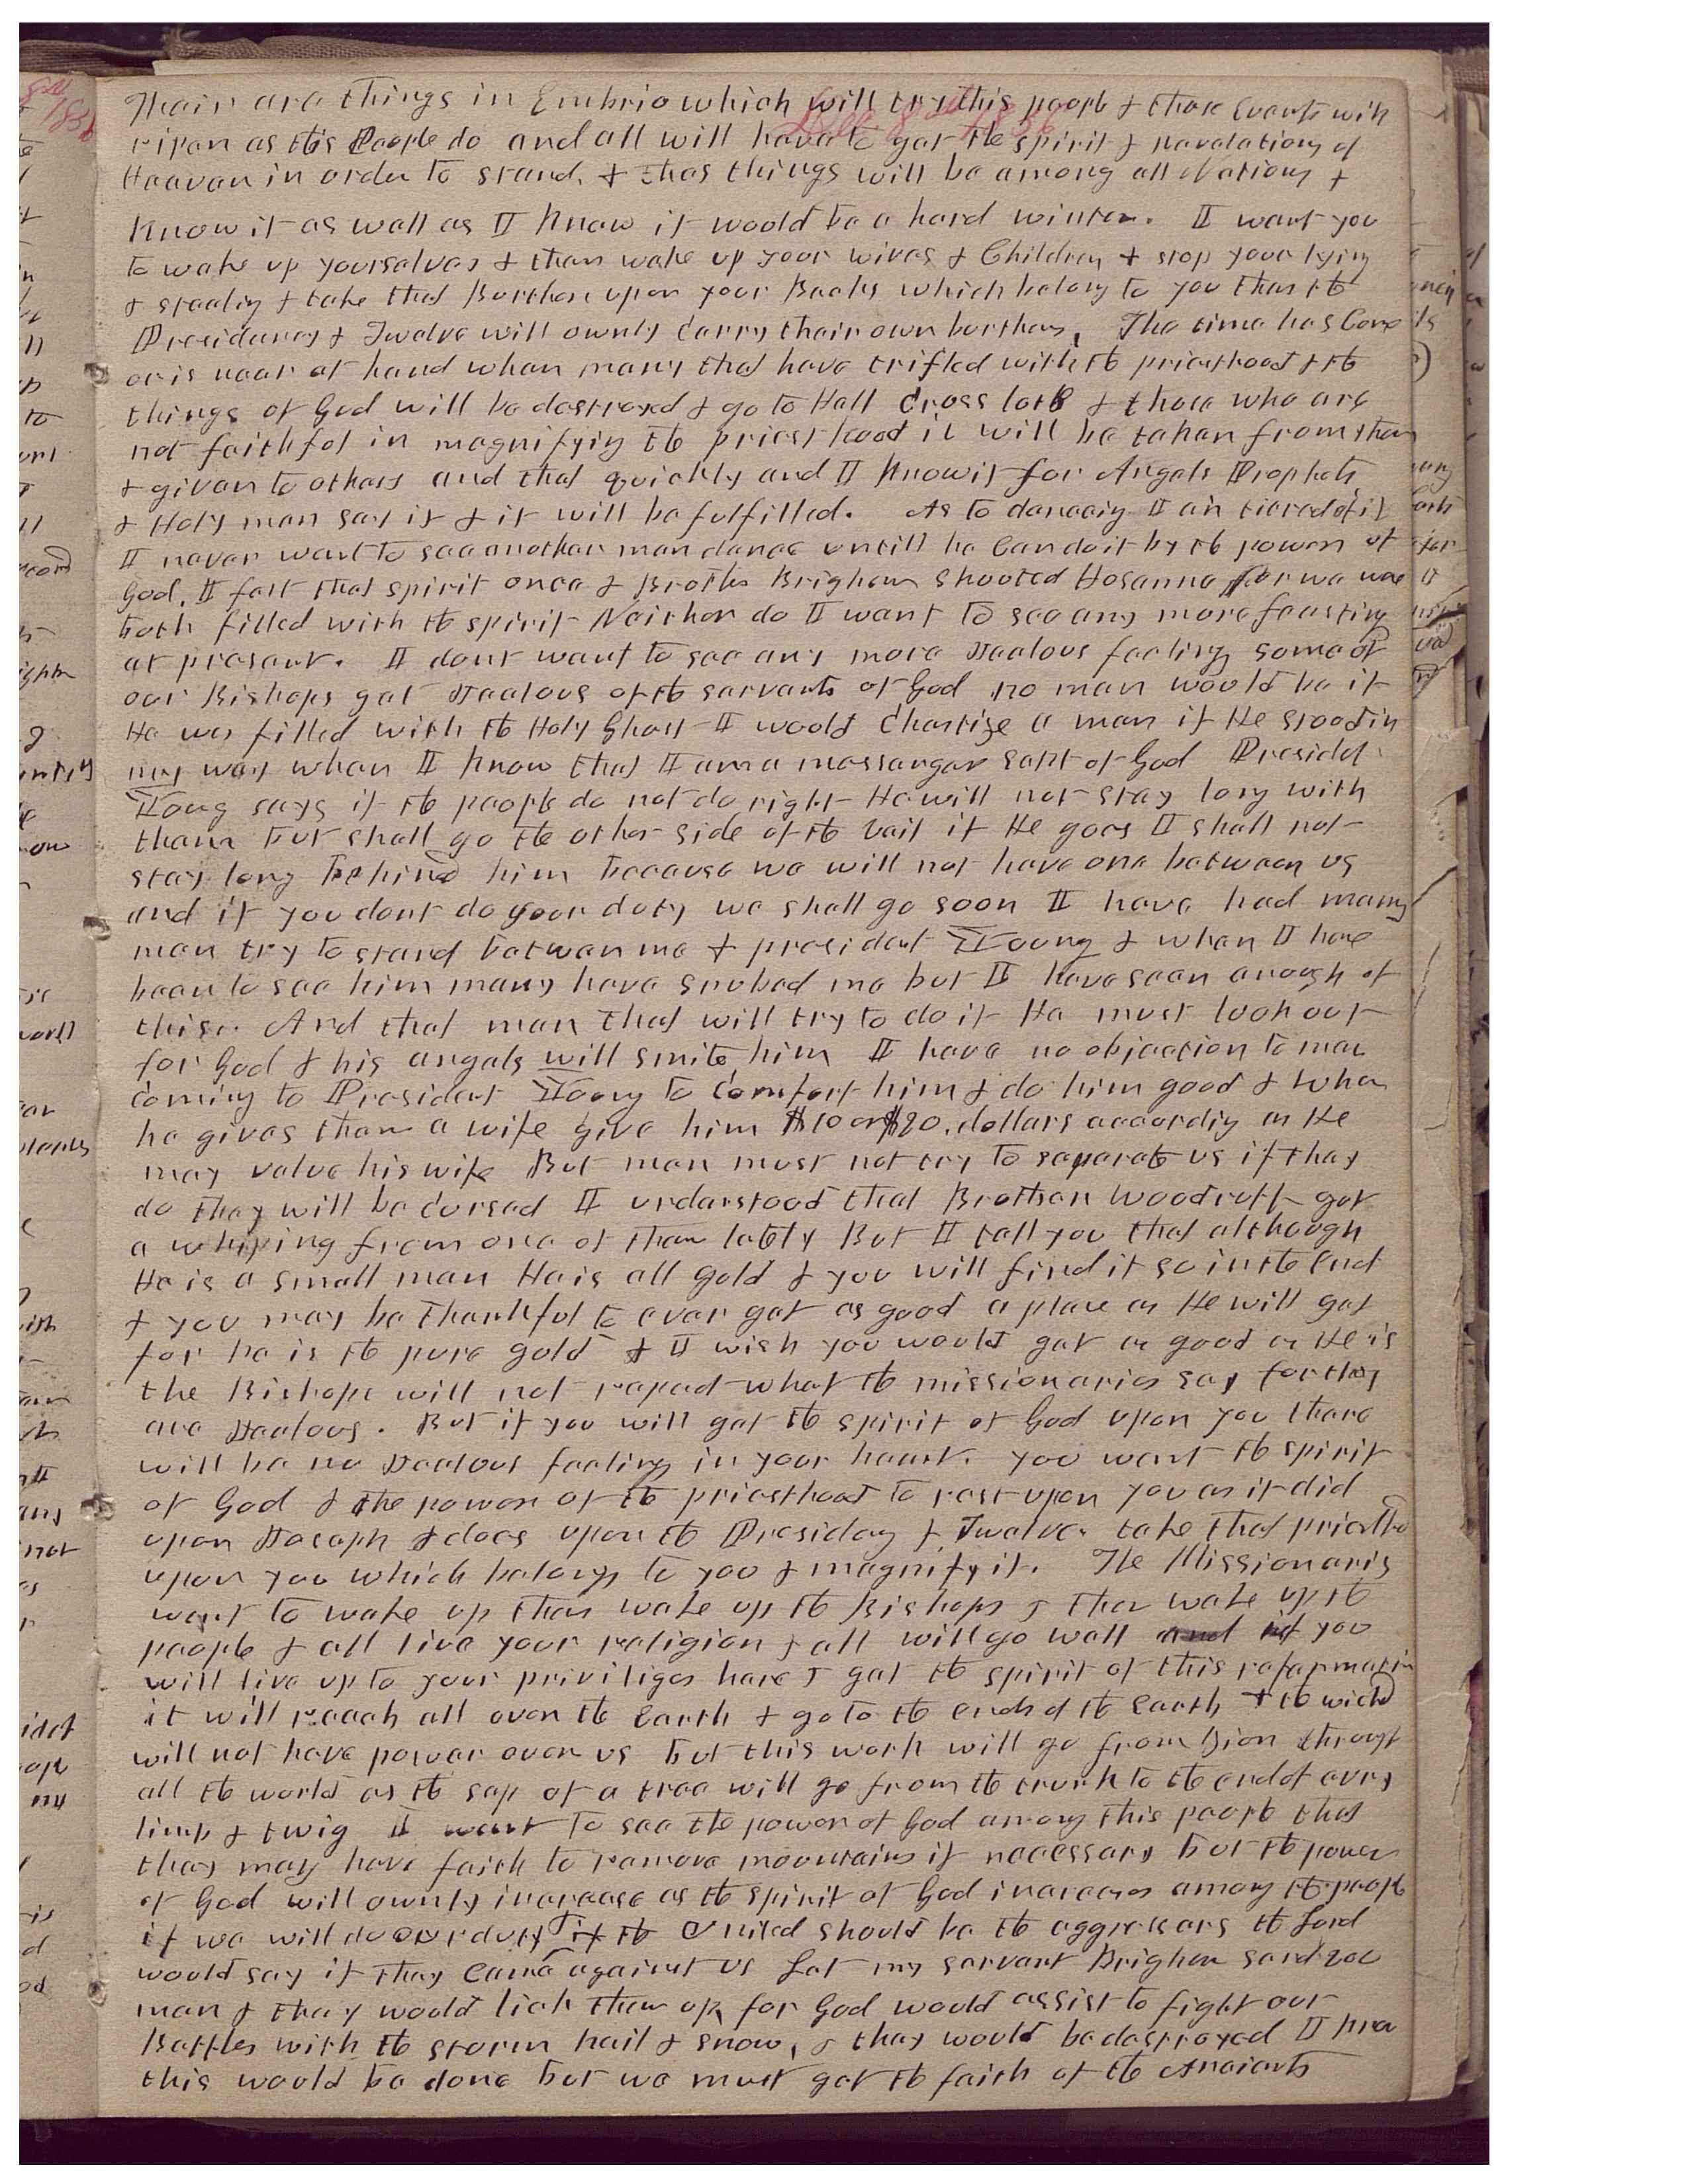 Dec 8th 1856
Their are things in Embrio which will try this people & those Events will
ripen as this People do and all will have to get the spirit & Revelations of
Heaven in order to stand. & thes things will be among all Nations &
Know it as well as I Know it would be a hard winter. I want you
to wake up yourselves & then wake up your wives & Children & stop your lying
& stealing & take that Burthen upon your Backs which belong to you then the
Presidency & Twelve will ownly carry their own burthens, The time has Come
or is near at hand when many that have trifled with the priesthood & the
things of God will be destroyed & go to Hell Cross lots & those who are
not faithful in magnifying the priesthood it will be taken from them
& given to others and that quickly and I Know it for Angels Prophets
& Holy men say it & it will be fulfilled. As to dancing I am tiered of it
I never want to see another man dance untill he Can do it by the power of
God. I felt that spirit once & Brother Brigham shouted Hosanna for we were
both filled with the spirit Neither do I want to see any more feasting
at present. I dont want to see any more Jealous feeling some of
our Bishops get Jealous of the servants of God no man would be if
He was filled with the Holy Ghost I would Chastize a man if He stood in
my way when I know that I am a messenger sent of God Presidet
Young says if the people do not do right He will not stay long with
them but shall go the other side of the vail if He goes I shall not
stay long behind him because we will not have one between us
and if you dont do your duty we shall go soon I have had many
men try to stand betwen me & president Young & when I have
been to see him many have snubed me but I have seen enough of
this. And that man that will try to do it He must look out
for God & his angels will smite him I have no objection to men
coming to President Young to Comfort him & do him good & when
he gives them a wife give him $10 or $20. dollars accordig as He
may value his wife But men must not try to seperate us if they
do they will be cursed I understood that Brother Woodruff got
a whiping from one of them lately But I tell you that although
He is a small man He is all gold & you will find it so in the End
& you may be thankful to ever get as good a place as He will get
for he is the pure gold & I wish you would get as good as He is
the Bishops will not repeat what the missionaries say for they
are Jealous. But if you will get the spirit of God upon you there
will be no Jealous feeling in your heart. you want the spirit
of God & the power of the priesthood to rest upon you as it did
upon Joseph & does upon the Presidey & Twelve. take that priesthood
upon you which belongs to you & magnify it. The Missionaris
want to wake up then wake up the Bishops & then wake up the
people & all live your religion & all will go well and if you
will live up to your priviliges here & get the spirit of this reformation
it will reach all over the Earth & go to the ends of the Earth & the wicked
will not have power over us but this work will go from Zion through
all the world as the sap of a tree will go from the trunk to the end of evry
limb & twig I want to see the power of God among this people that
they may have faith to remove mountains if necessary but the power
of God will ownly increase as the spirit of God increases among the people
if we will do our duty & if the United should be the aggressors the Lord
would say if they came against us Let my servant Brigham send 200
men & they would lick them up, for God would assist to fight our
Battles with the storm hail & snow, & they would be destroyed I know
this would be done but we must get the faith of the Ancients